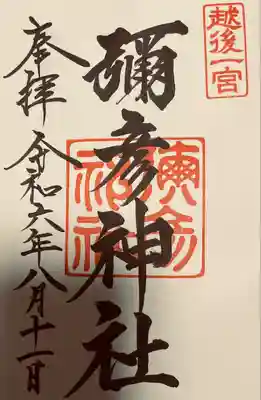 越後一宮
彌彦神社
奉拝
令和六年八月十一日